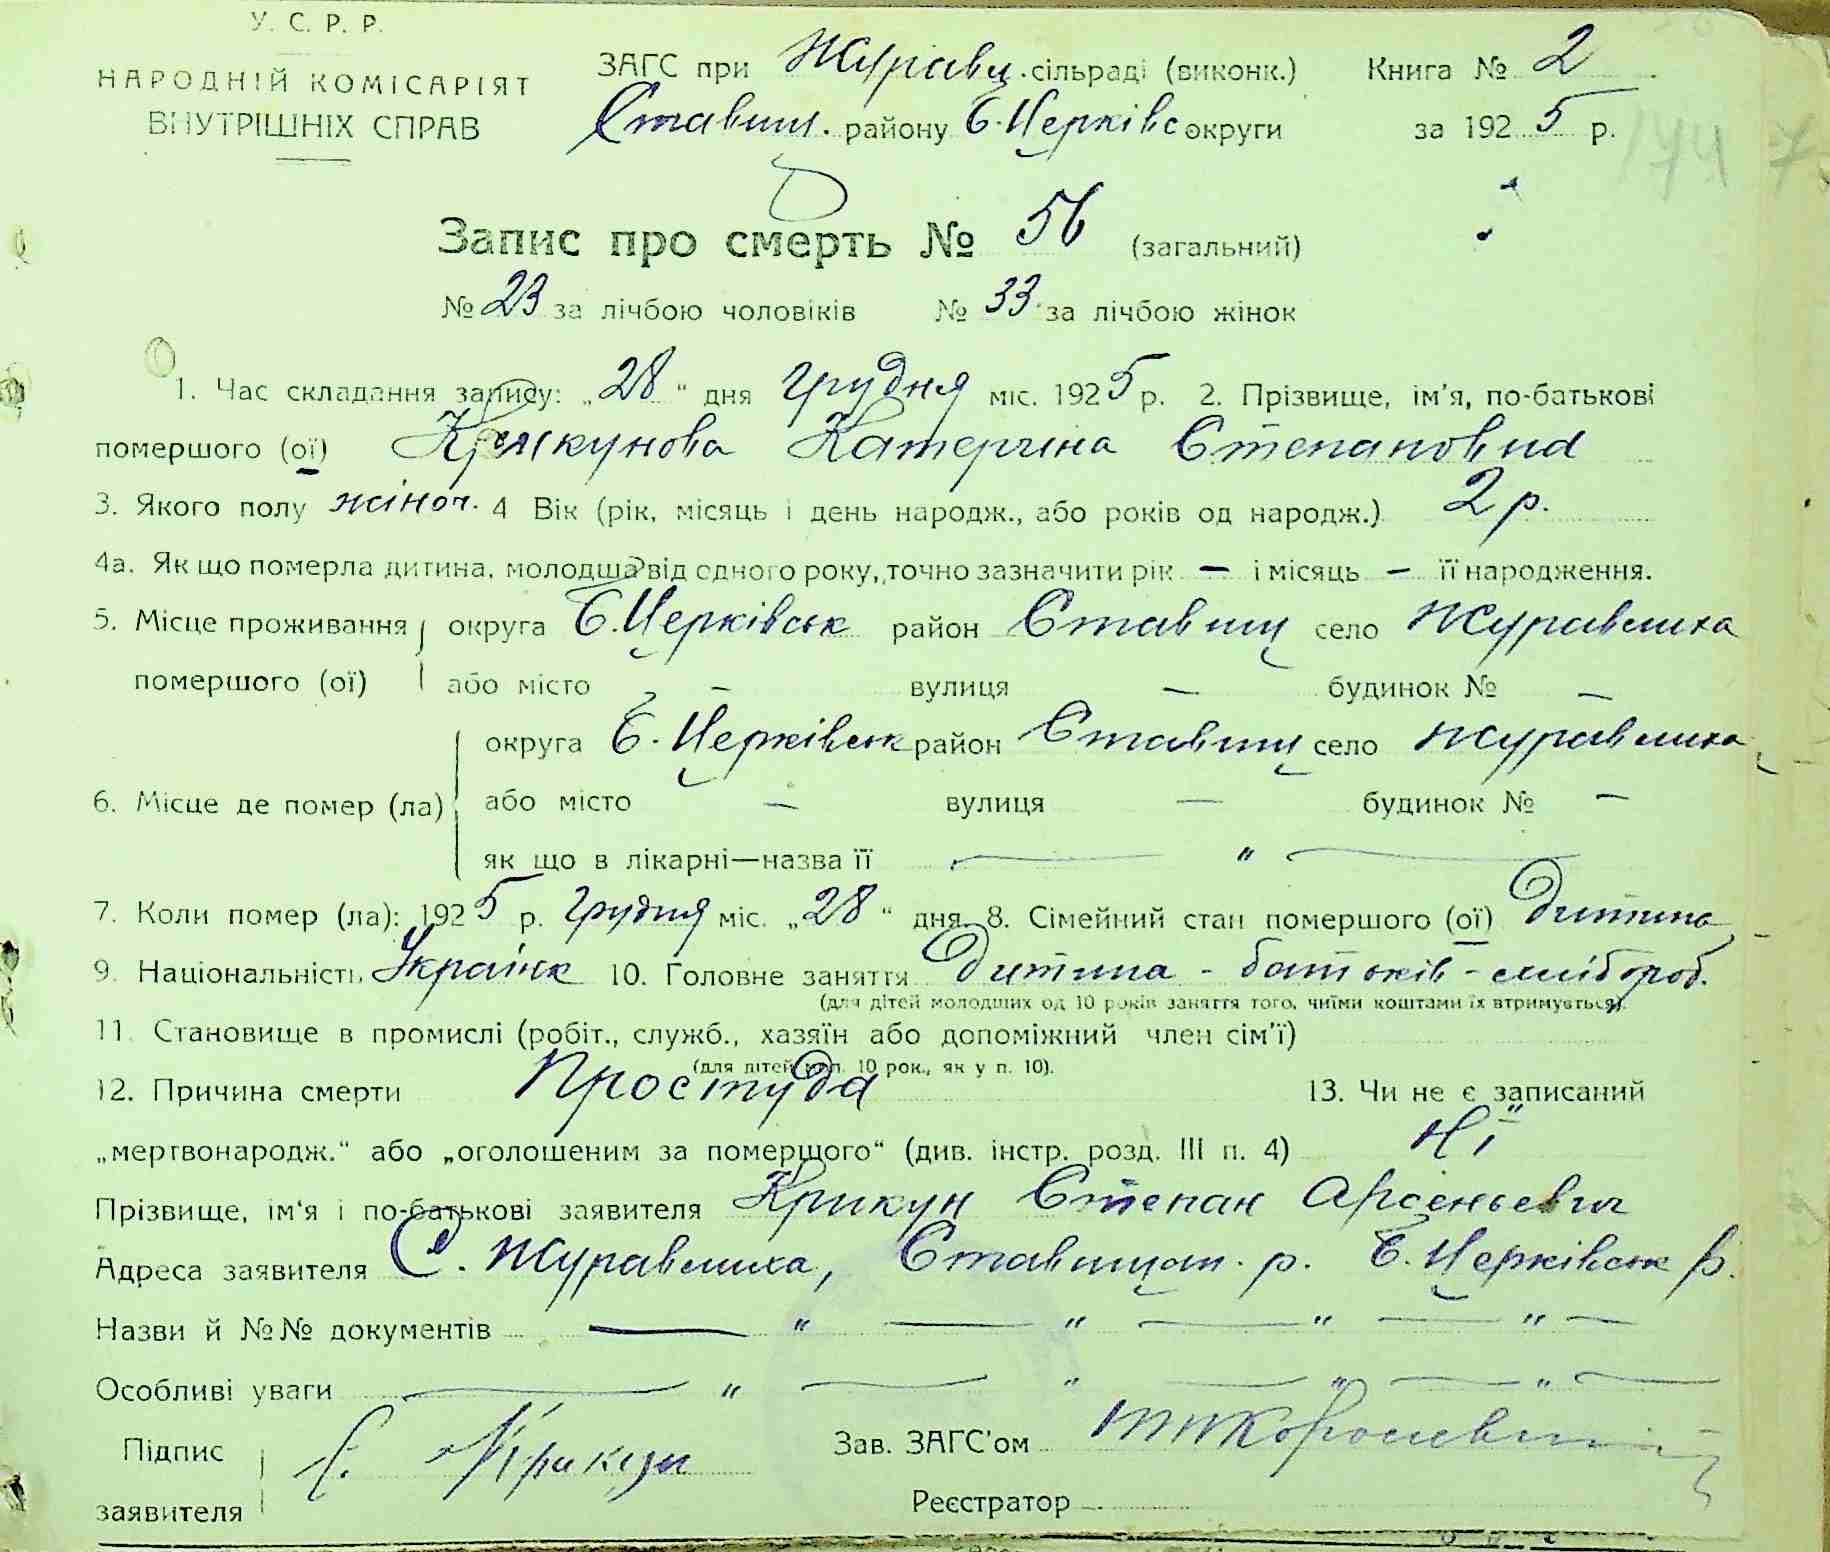 У. С. Р. Р.
НАРОДНІЙ КОМІСАРІЯТ
ВНУТРІШНІХ СПРАВ
ЗАГС при Журавл. сільраді (виконк.) Книга № 2
Ставищ. району Б. Церківс округи за 1925 р.
Запис про смерть № 56 (загальний)
№ 23 за лічбою чоловіків № 33 за лічбою жінок
1. Час складання запису: „28" дня грудня міс. 1925 р. 2. Прізвище, ім'я, по-батькові
помершого (ої) Крикунова Катерина Степановна
3. Якого полу жіноч. 4 Вік (рік, місяць і день народж., або років од народж.) 2 р.
4а. Як що померла дитина, молодша від одного року, точно зазначити рік — і місяць — її народження.
5. Місце проживання округа Б. Церківськ район Ставищ село Журавлиха
помершого (ої) або місто — вулиця — будинок № —
округа Б. Церківськ район Ставищ село Журавлиха
6. Місце де помер (ла) або місто — вулиця — будинок № —
як що в лікарні—назва її — " —
7. Коли помер (ла): 1925 р. грудня міс. „28" дня 8. Сімейний стан помершого (ої) Дитина
9. Національність Українк 10. Головне заняття Дитина - батьків - хлібороб.
(для дітей молодших од 10 років заняття того, чиїми коштами їх втримується).
11. Становище в промислі (робіт., служб., хазяїн або допоміжний член сім'ї)
(для дітей мол. 10 рок., як у п. 10).
12. Причина смерти Простуда 13. Чи не є записаний
„мертвонародж." або „оголошеним за помершого" (див. інстр. розд. III п. 4) Ні
Прізвище, ім'я і по-батькові заявителя Крикун Степан Арсеньевич
Адреса заявителя С. Журавлиха, Ставищан. р. Б. Церківськ
Назви й №№ документів — " — " — " — " —
Особливі уваги — " — " — " — " —
Підпис С. Крикун Зав. ЗАГС'ом
заявителя Реєстратор